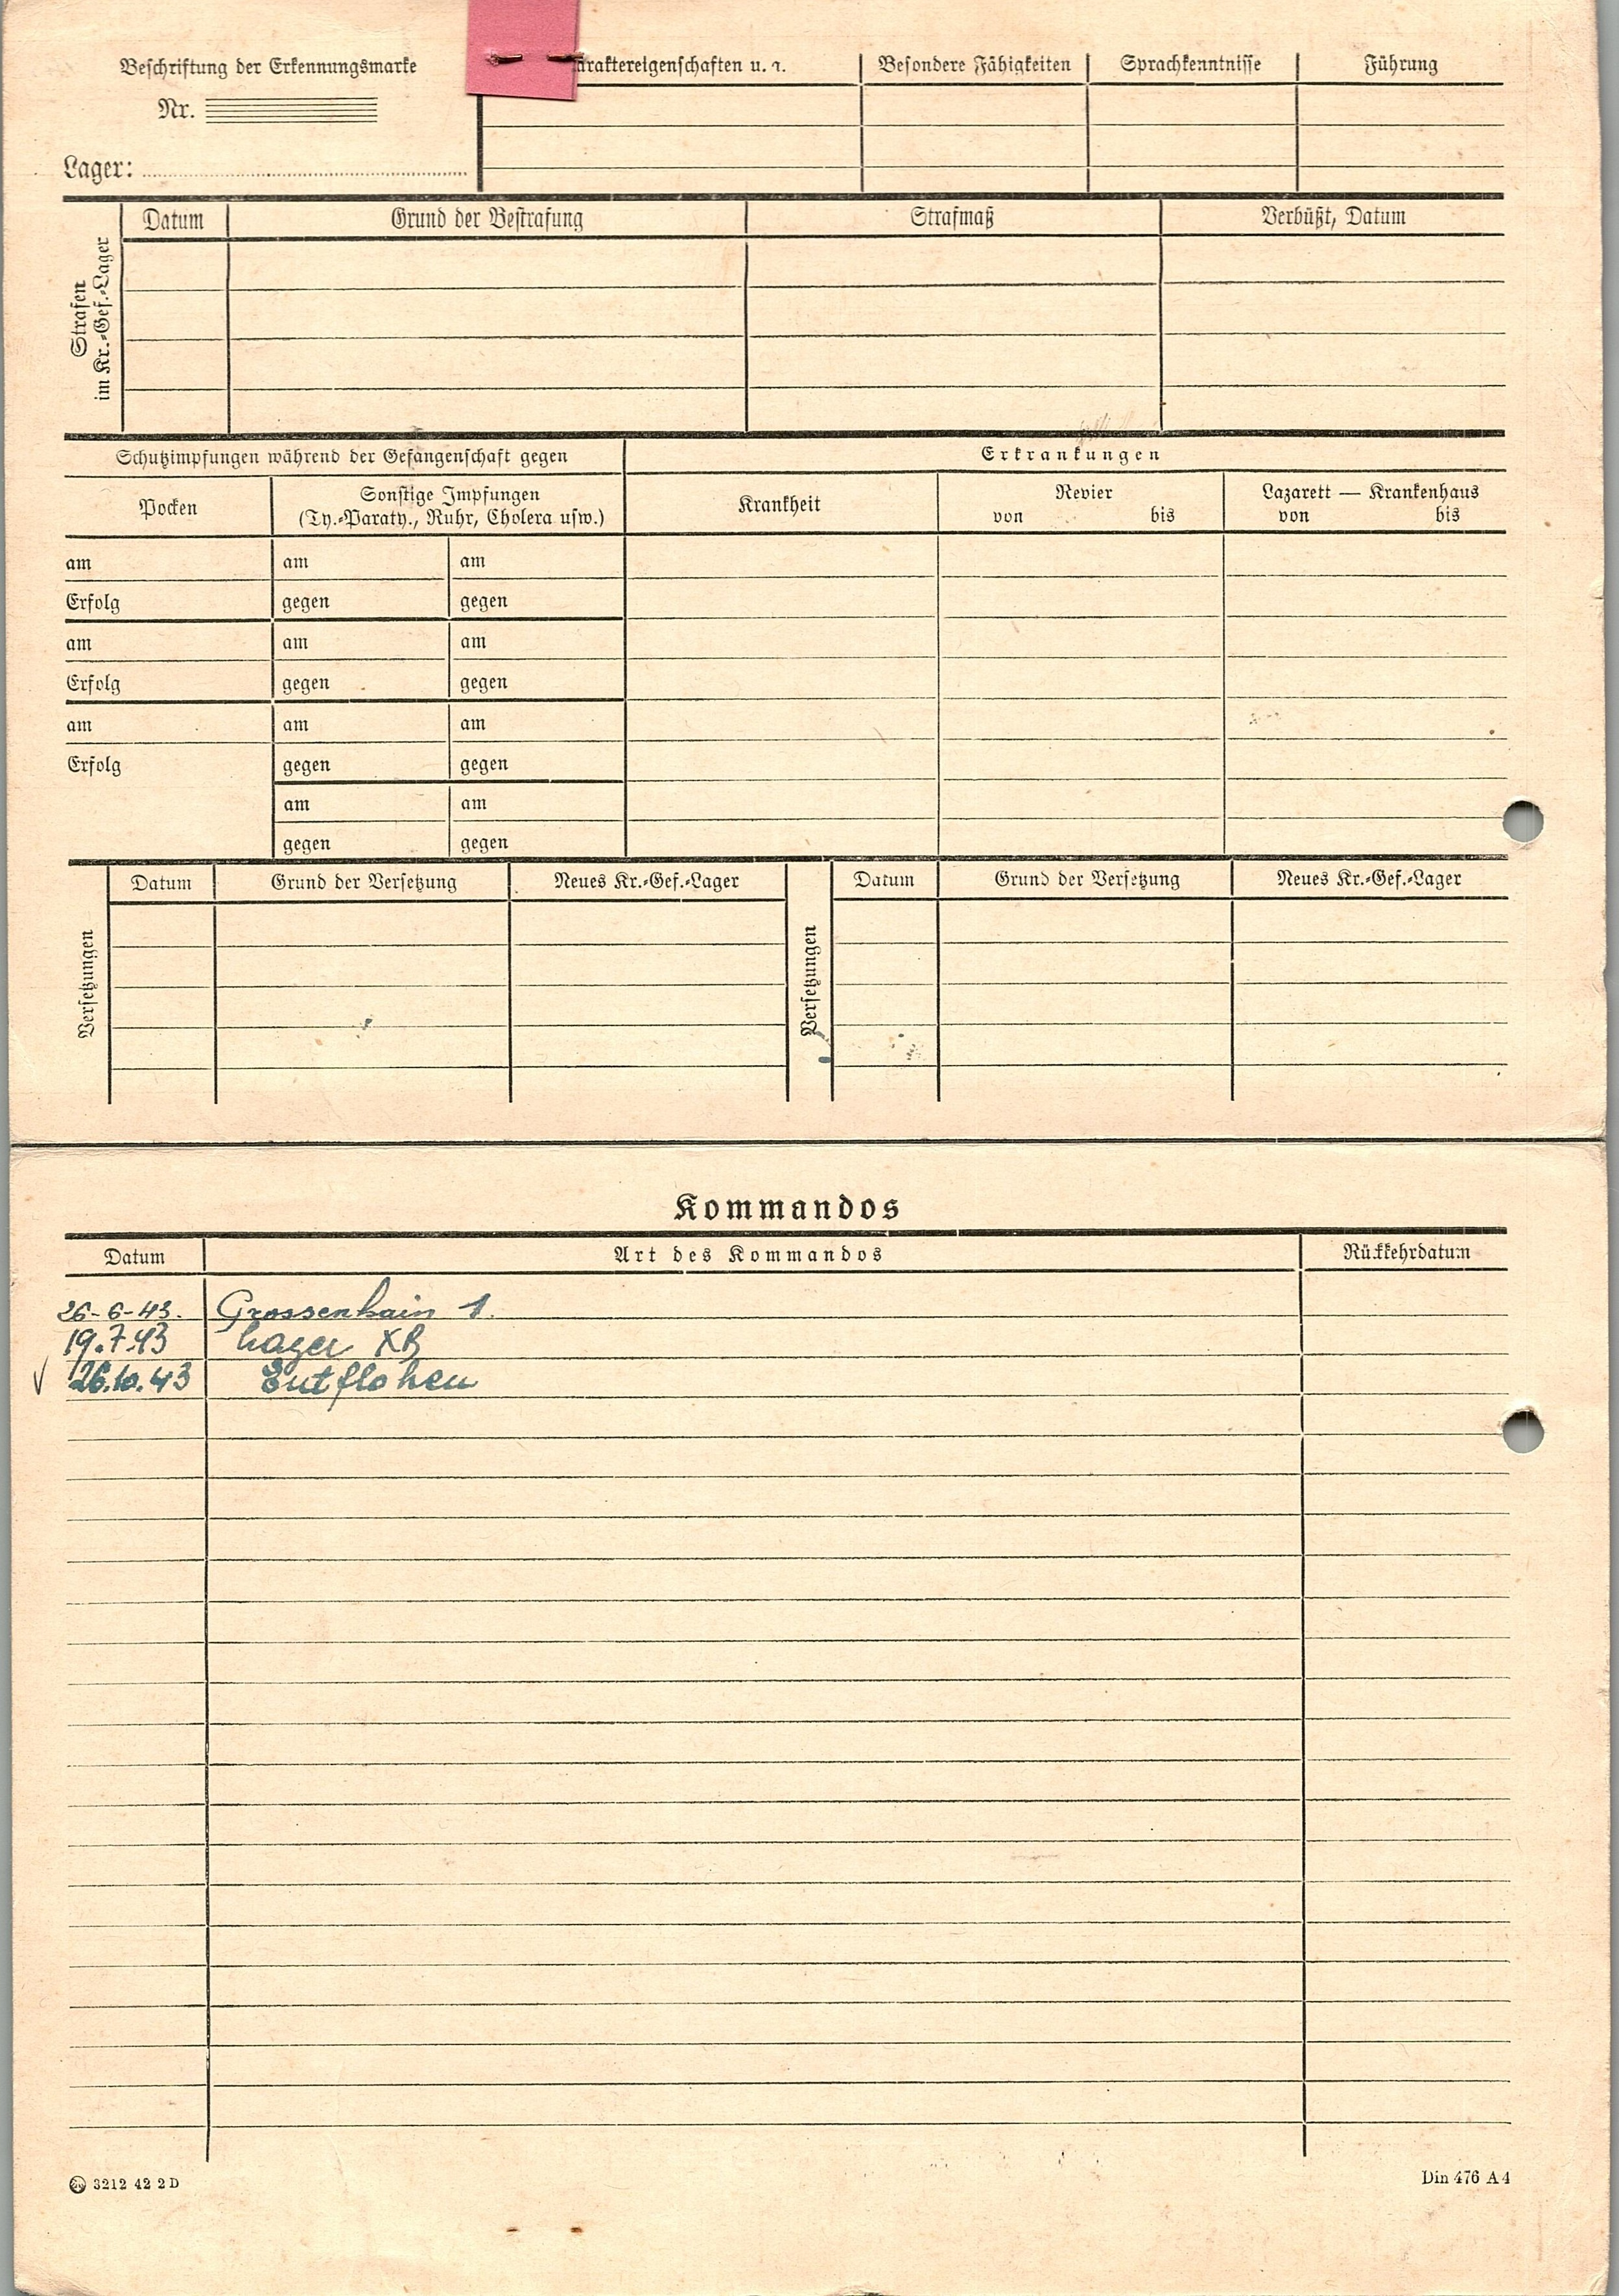 Beschriftung der Erkennungsmarke
Nr.
Lager:
araktereigenschaften u. a. Besondere Fähigkeiten Sprachkenntnisse Führung
Strafen
im Kr.-Gef.-Lager
Datum Grund der Bestrafung Strafmaß Verbüßt, Datum
Schutzimpfungen während der Gefangenschaft gegen Erkrankungen
Pocken Sonstige Impfungen Krankheit Revier Lazarett — Krankenhaus
(Ty.-Paraty., Ruhr, Cholera usw.) von bis von bis
am am am
Erfolg gegen gegen
am am am
Erfolg gegen gegen
am am am
Erfolg gegen gegen
am am
gegen gegen
Versetzungen
Datum Grund der Versetzung Neues Kr.-Gef.-Lager
Versetzungen
Datum Grund der Versetzung Neues Kr.-Gef.-Lager
Kommandos
Datum Art des Kommandos Rückkehrdatum
26-6-43. Grossenhain 1.
19.7.43 Lager XB
26.10.43 Entflohen
3212 42 2 D Din 476 A 4